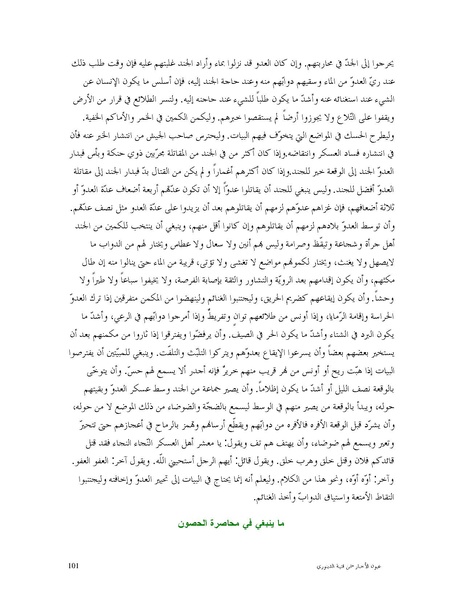 يخرجوا إلى الجدّ في محاربتهم. وإن كان العدو قد نزلوا بماء وأراد الجند غلبتهم عليه فإن وقت طلب ذلك
عند ريّ العدوّ من الماء وسقيهم دوابّهم منه وعند حاجة الجند إليه، فإن أسلس ما يكون الإنسان عن
الشيء عند استغنائه عنه وأشدّ ما يكون طلباً للشيء عند حاجته إليه. ولتسر الطلائع في قرار من الأرض
ويقفوا على التّلاع ولا يجوزوا أرضاً لم يستقصوا خبرهم. وليكمن الكمين في الخمر والأماكم الخفية.
وليطرح الحسك في المواضع التي يتخوّف فيهم البيات. وليحترس صاحب الجيش من انتشار الخبر عنه فأن
في انتشاره فساد العسكر وانتقاضه.وإذا كان أكثر من في الجند من المقاتلة مجرّبين ذوي حنكة وبأس فبدار
العدوّ الجند إلى الوقعة خير للجند.وإذا كان أكثرهم أغماراً ولم يكن من القتال بدّ فبدار الجند إلى مقاتلة
العدوّ أفضل للجند. وليس ينبغي للجند أن يقاتلوا عدوّاً إلا أن تكون عدّتهم أربعة أضعاف عدّة العدوّ أو
ثلاثة أضعافهم، فإن غزاهم عدوّهم لزمهم أن يقاتلوهم بعد أن يزيدوا على عدّة العدو مثل نصف عدّتهم.
وأن توسط العدوّ بلادهم لزمهم أن يقاتلوهم وإن كانوا أقل منهم، وينبغي أن ينتخب للكمين من الجند
أهل جرأة وشجاعة وتيقّظ وصرامة وليس بهم أنين ولا سعال ولا عطاس ويختار لهم من الدواب ما
لايصهل ولا يغنث، ويختار لكمونهم مواضع لا تغشى ولا تؤتى، قريبة من الماء حتى ينالوا منه إن طال
مكثهم، وأن يكون إقدامهم بعد الرويّة والتشاور والثقة بإصابة الفرصة، ولا يخيفوا سباعاً ولا طيراً ولا
وحشاً. وأن يكون إيقاعهم كضريم الحريق، وليجتنبوا الغنائم ولينهضوا من المكمن متفرقين إذا ترك العدوّ
الحراسة وإقامة الرّبايا، وإذا أونس من طلائعهم توانٍ وتفريطٌ وإذا أمرجوا دوابّهم في الرعي، وأشدّ ما
يكون البرد في الشتاء وأشدّ ما يكون الحر في الصيف. وأن يرفضّوا ويفترقوا إذا ثاروا من مكمنهم بعد أن
يستخير بعضهم بعضاً وأن يسرعوا الإيقاع بعدوّهم ويتركوا التلبّث والتلفّت. وينبغي للمبيّتين أن يفترصوا
البيات إذا هبّت ريح أو أونس من نهر قريب منهم خرير فإنه أجدر ألا يسمع لهم حسّ. وأن يتوخّى
بالوقعة نصف الليل أو أشدّ ما يكون إظلاماً. وأن يصير جماعة من الجند وسط عسكر العدوّ وبقيتهم
حوله، ويبدأ بالوقعة من يصير منهم في الوسط ليسمع بالضجّة والضوضاء من ذلك الموضع لا من حوله،
وأن يشرّد قبل الوقعة الأفره فالأفره من دوابّهم ويقطّع أرسانهم وتهمز بالرماح في أعجازهم حتى تتحيرّ
وتعير ويسمع لهم ضوضاء، وأن يهتف هم تف ويقول: يا معشر أهل العسكر النّجاء النجاء فقد قتل
قائدكم فلان وقتل خلق وهرب خلق. ويقول قائل: أيهم الرجل أستحيني اللّه. ويقول آخر: العفو العفو.
وآخر: أوّه أوّه، ونحو هذا من الكلام. وليعلم أنه إنما يحتاج في البيات إلى تحيير العدوّ وإخافته وليجتنبوا
التقاط الأمتعة واستياق الدوابّ وأخذ الغنائم.
ما ينبغي في محاصرة الحصون
عيون الأخبار-ابن قتيبة الدينوري
101